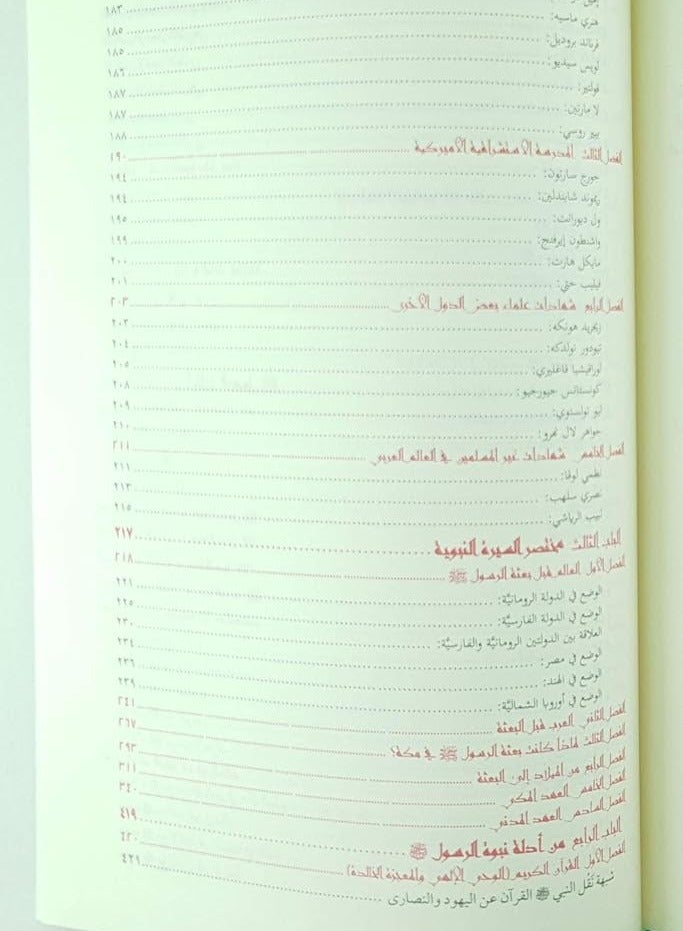 ١٨٣
هنري ماسيه: ١٨٥
فرناند بروديل: ١٨٥
لويس سيديو: ١٨٦
فولتير: ١٨٧
لا مارتين: ١٨٧
بيير روسي: ١٨٨
الفصل الثالث المدرسة الاستشراقية الأميركية ١٩٠
جورج سارتون: ١٩٤
ريموند شايندلين: ١٩٤
ول ديورانت: ١٩٥
واشنطون إيرفنج: ١٩٩
مايكل هارت: ٢٠٠
فيليب حتي: ٢٠١
الفصل الرابع شهادات علماء بعض الدول الأخرى ٢٠٣
زيغريد هونكه: ٢٠٣
تيودور نولدكه: ٢٠٤
لورافيشيا فاغليري: ٢٠٥
كونستانس جيورجيو: ٢٠٨
ليو تولستوي: ٢٠٩
جواهر لال نهرو: ٢١٠
الفصل الخامس شهادات غير المسلمين في العالم العربي ٢١١
نظمي لوقا: ٢١١
نصري سلهب: ٢١٣
لبيب الرياشي: ٢١٥
الباب الثالث مختصر السيرة النبوية ٢١٧
الفصل الأول العالم قبل بعثة الرسول ﷺ ٢١٨
الوضع في الدولة الرومانيَّة: ٢٢١
الوضع في الدولة الفارسيَّة: ٢٢٥
العلاقة بين الدولتين الرومانيَّة والفارسيَّة: ٢٣٠
الوضع في مصر: ٢٣٤
الوضع في الهند: ٢٣٦
الوضع في أوروبا الشماليَّة: ٢٣٩
الفصل الثاني العرب قبل البعثة ٢٤١
الفصل الثالث لماذا كانت بعثة الرسول ﷺ في مكة؟ ٢٦٧
الفصل الرابع من الميلاد إلى البعثة ٢٩٣
الفصل الخامس العهد المكي ٣١١
الفصل السادس العهد المدني ٣٤٠
الباب الرابع من أدلة نبوة الرسول ﷺ ٤١٩
الفصل الأول القرآن الكريم (الوحي الإلهي والمعجزة الخالدة) ٤٢٠
شبهة نَقْل النبي ﷺ القرآن عن اليهود والنصارى ٤٢١